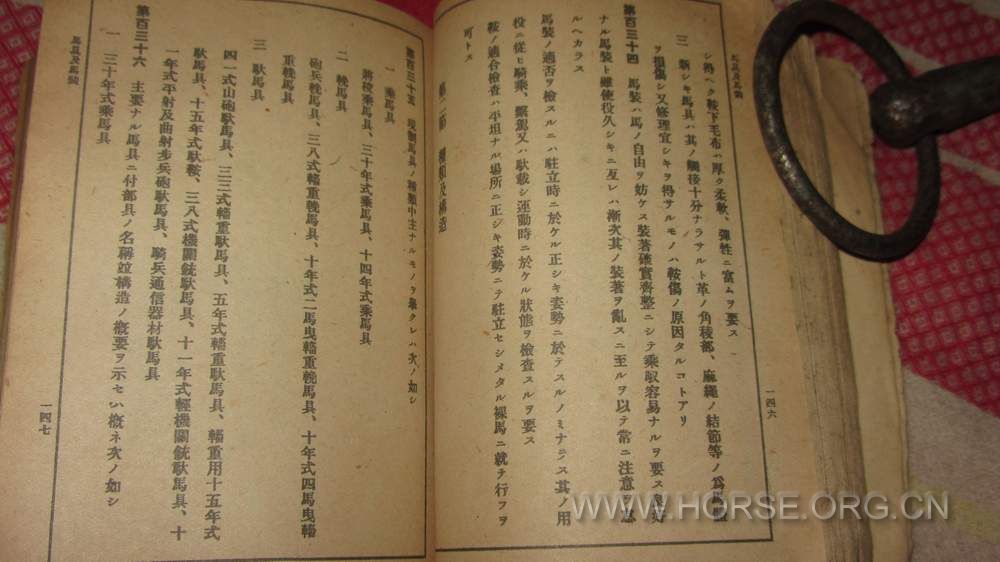 馬具及馬裝
シ得ヘク鞍下毛布ハ厚ク柔軟、彈性ニ富ムヲ要ス
三 新シキ馬具ハ其ノ觸接十分ナラサルト革ノ角稜部、麻繩ノ結節等ノ爲馬體
ヲ損傷シ又修理宜シキヲ得サルモノハ鞍傷ノ原因タルコトアリ
第百三十四 馬裝ハ馬ノ自由ヲ妨ケス裝著確實齊整ニシテ乘馭容易ナルヲ要ス
ナル馬裝ト雖使役久シキニ亙レハ漸次其ノ裝著ヲ亂スニ至ルヲ以テ常ニ注意
ルヘカラス
馬裝ノ適否ヲ檢スルニハ駐立時ニ於ケル正シキ姿勢ニ於テスルノミナラス其ノ用
役ニ從ヒ騎乘、繫駕又ハ馱載シ運動時ニ於ケル狀態ヲ檢査スルヲ要ス
鞍ノ適合檢査ハ平坦ナル場所ニ正シキ姿勢ニテ駐立セシメタル裸馬ニ就テ行フヲ
可トス
一四六
第二節 種類及構造
第百三十五 現制馬具ノ種類中主ナルモノヲ擧クレハ次ノ如シ
一 乘馬具
將校乘馬具、三十年式乘馬具、十四年式乘馬具
二 輓馬具
砲兵輓馬具、三八式輜重輓馬具、十年式二馬曳輜重輓馬具、十年式四馬曳輜
重輓馬具
三 馱馬具
四一式山砲馱馬具、三三式輜重馱馬具、五年式輜重馱馬具、輜重用十五年式
馱馬具、十五年式馱鞍、三八式機關銃馱馬具、十一年式輕機關銃馱馬具、十
一年式平射及曲射步兵砲馱馬具、騎兵通信器材馱馬具
第百三十六 主要ナル馬具ニ付部具ノ名稱竝構造ノ槪要ヲ示セハ槪ネ次ノ如シ
一 三十年式乘馬具
馬具及馬裝
一四七
WWW.HORSE.ORG.CN